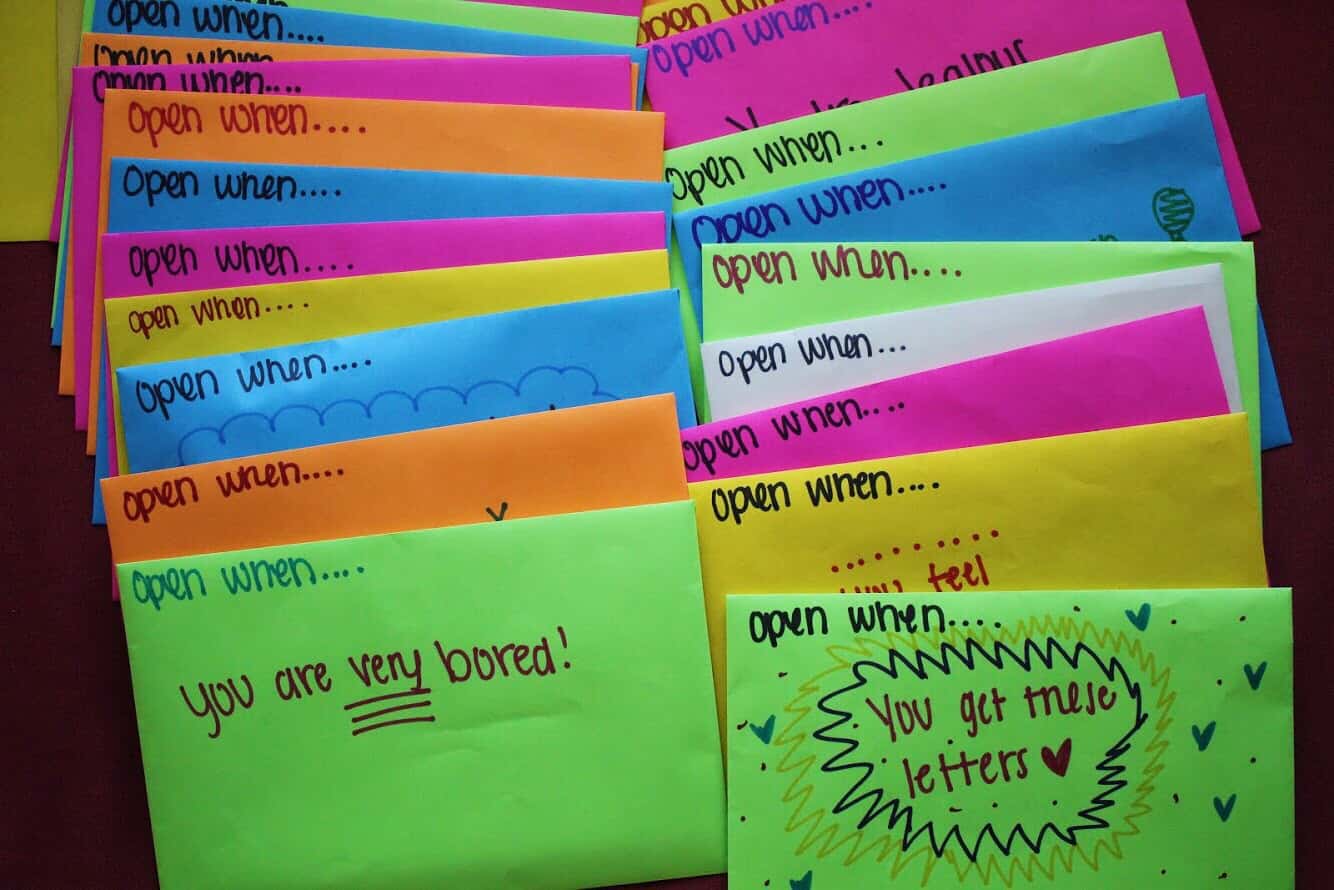 Open when....
Open when
Open when....
Open when....
Open when....
Open when....
open when....
Open when....
Open when....
Open when....
you are very bored!
Open when
Open when....
Open when...
Open when....
Open when....
Open when...
Open when....
Open when....
........
you feel
open when....
You get these
letters ♥